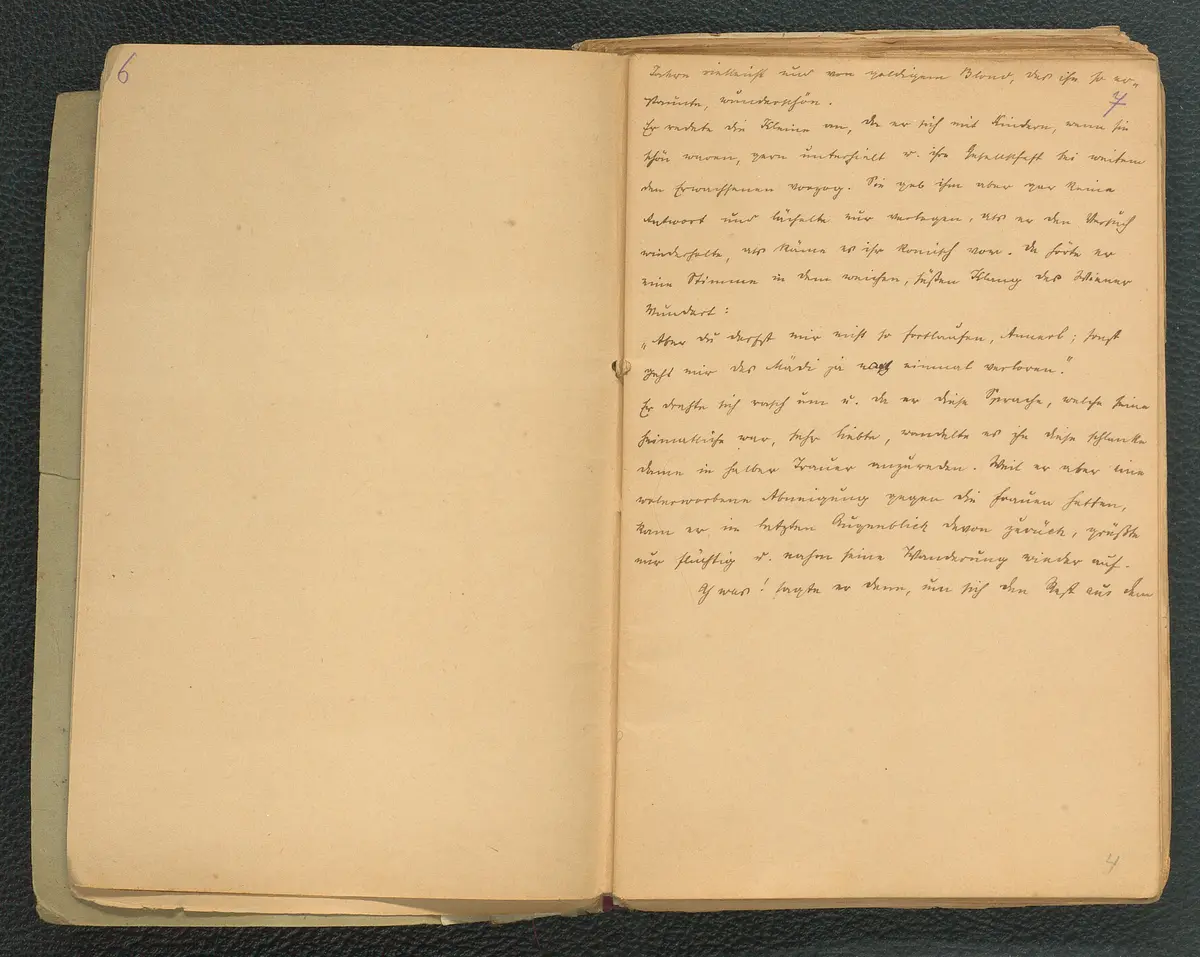 6
Jahre vielleicht und von goldigem Blond, das ihn so er-
staunte, wunderschön.
7
Er redete die Kleine an, da er sich mit Kindern, wenn sie
schön waren, gern unterhielt u. ihre Gesellschaft bei weitem
den Erwachsenen vorzog. Sie gab ihm aber gar keine
Antwort und lächelte nur verlegen, als er den Versuch
wiederholte, als käme es ihr komisch vor. Da hörte er
eine Stimme in dem weichen, süßen Klang der Wiener
Mundart:
„Aber du darfst mir nicht so fortlaufen, Annerl; sonst
geht mir das Mädi ja noch einmal verloren."
Er drehte sich rasch um u. da er diese Sprache, welche seine
heimatliche war, sehr liebte, wandelte es ihn diese schlanke
Dame in halber Trauer anzureden. Weil er aber eine
Abneigung gegen die Frauen hatten,
kam er im letzten Augenblick davon zurück, grüßte
nur flüchtig u. nahm seine Wanderung wieder auf.
Ach was! sagte er dann, um sich den Rest aus dem
4